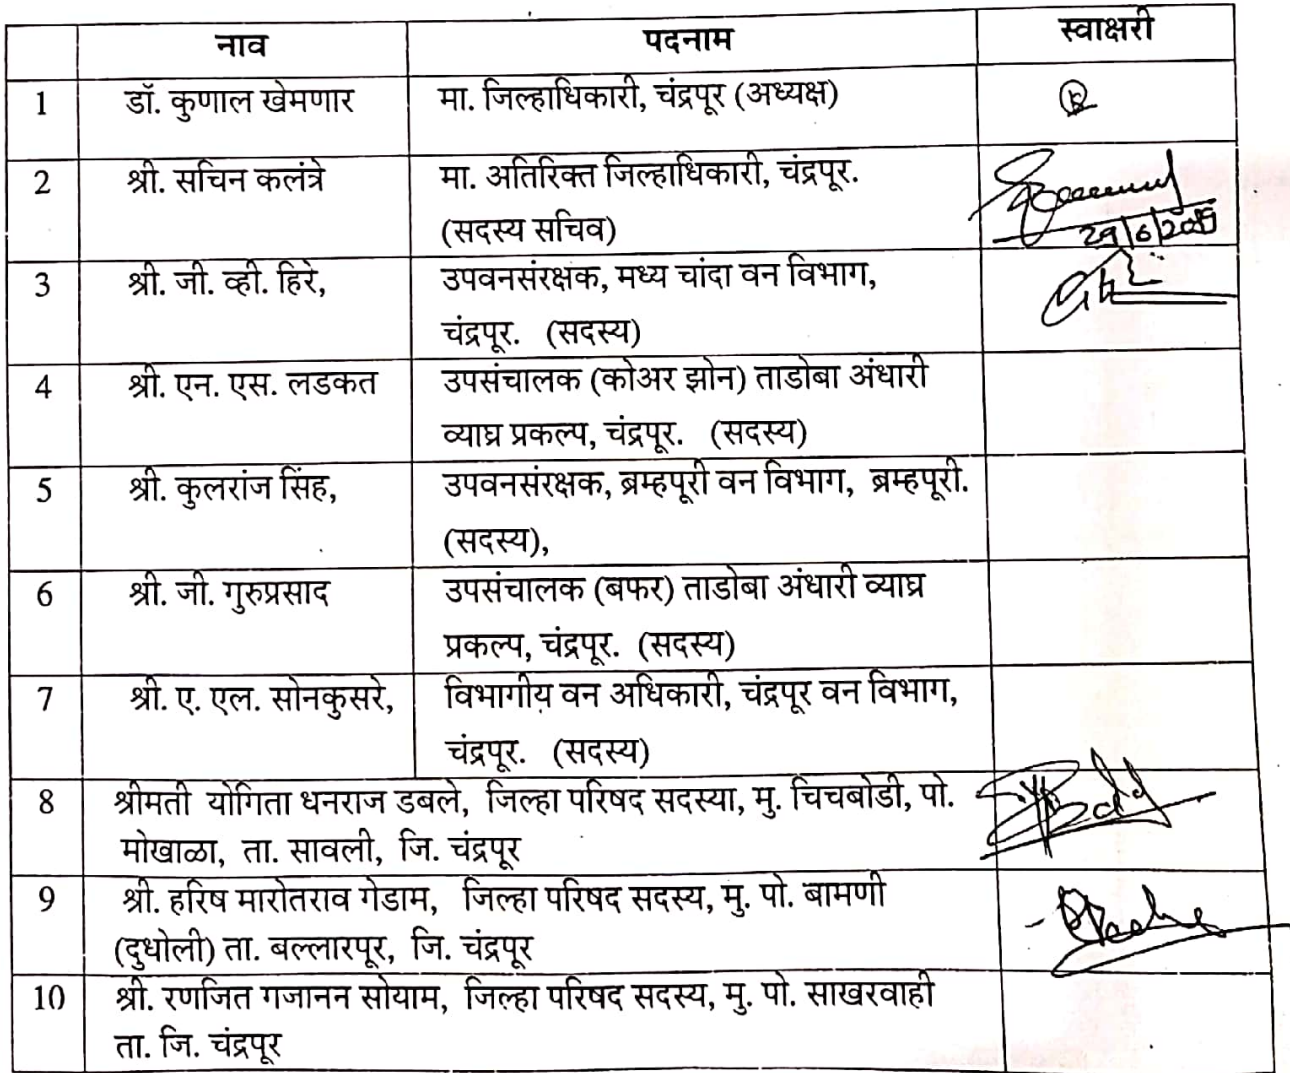 नाव पदनाम स्वाक्षरी
1 डॉ. कुणाल खेमणार मा. जिल्हाधिकारी, चंद्रपूर (अध्यक्ष)
2 श्री. सचिन कलंत्रे मा. अतिरिक्त जिल्हाधिकारी, चंद्रपूर.
(सदस्य सचिव)
29/6/2019
3 श्री. जी. व्ही. हिरे, उपवनसंरक्षक, मध्य चांदा वन विभाग,
चंद्रपूर. (सदस्य)
4 श्री. एन. एस. लडकत उपसंचालक (कोअर झोन) ताडोबा अंधारी
व्याघ्र प्रकल्प, चंद्रपूर. (सदस्य)
5 श्री. कुलरांज सिंह, उपवनसंरक्षक, ब्रम्हपूरी वन विभाग, ब्रम्हपूरी.
(सदस्य),
6 श्री. जी. गुरुप्रसाद उपसंचालक (बफर) ताडोबा अंधारी व्याघ्र
प्रकल्प, चंद्रपूर. (सदस्य)
7 श्री. ए. एल. सोनकुसरे, विभागीय वन अधिकारी, चंद्रपूर वन विभाग,
चंद्रपूर. (सदस्य)
8 श्रीमती योगिता धनराज डबले, जिल्हा परिषद सदस्या, मु. चिचबोडी, पो.
मोखाळा, ता. सावली, जि. चंद्रपूर
9 श्री. हरिष मारोतराव गेडाम, जिल्हा परिषद सदस्य, मु. पो. बामणी
(दुधोली) ता. बल्लारपूर, जि. चंद्रपूर
10 श्री. रणजित गजानन सोयाम, जिल्हा परिषद सदस्य, मु. पो. साखरवाही
ता. जि. चंद्रपूर